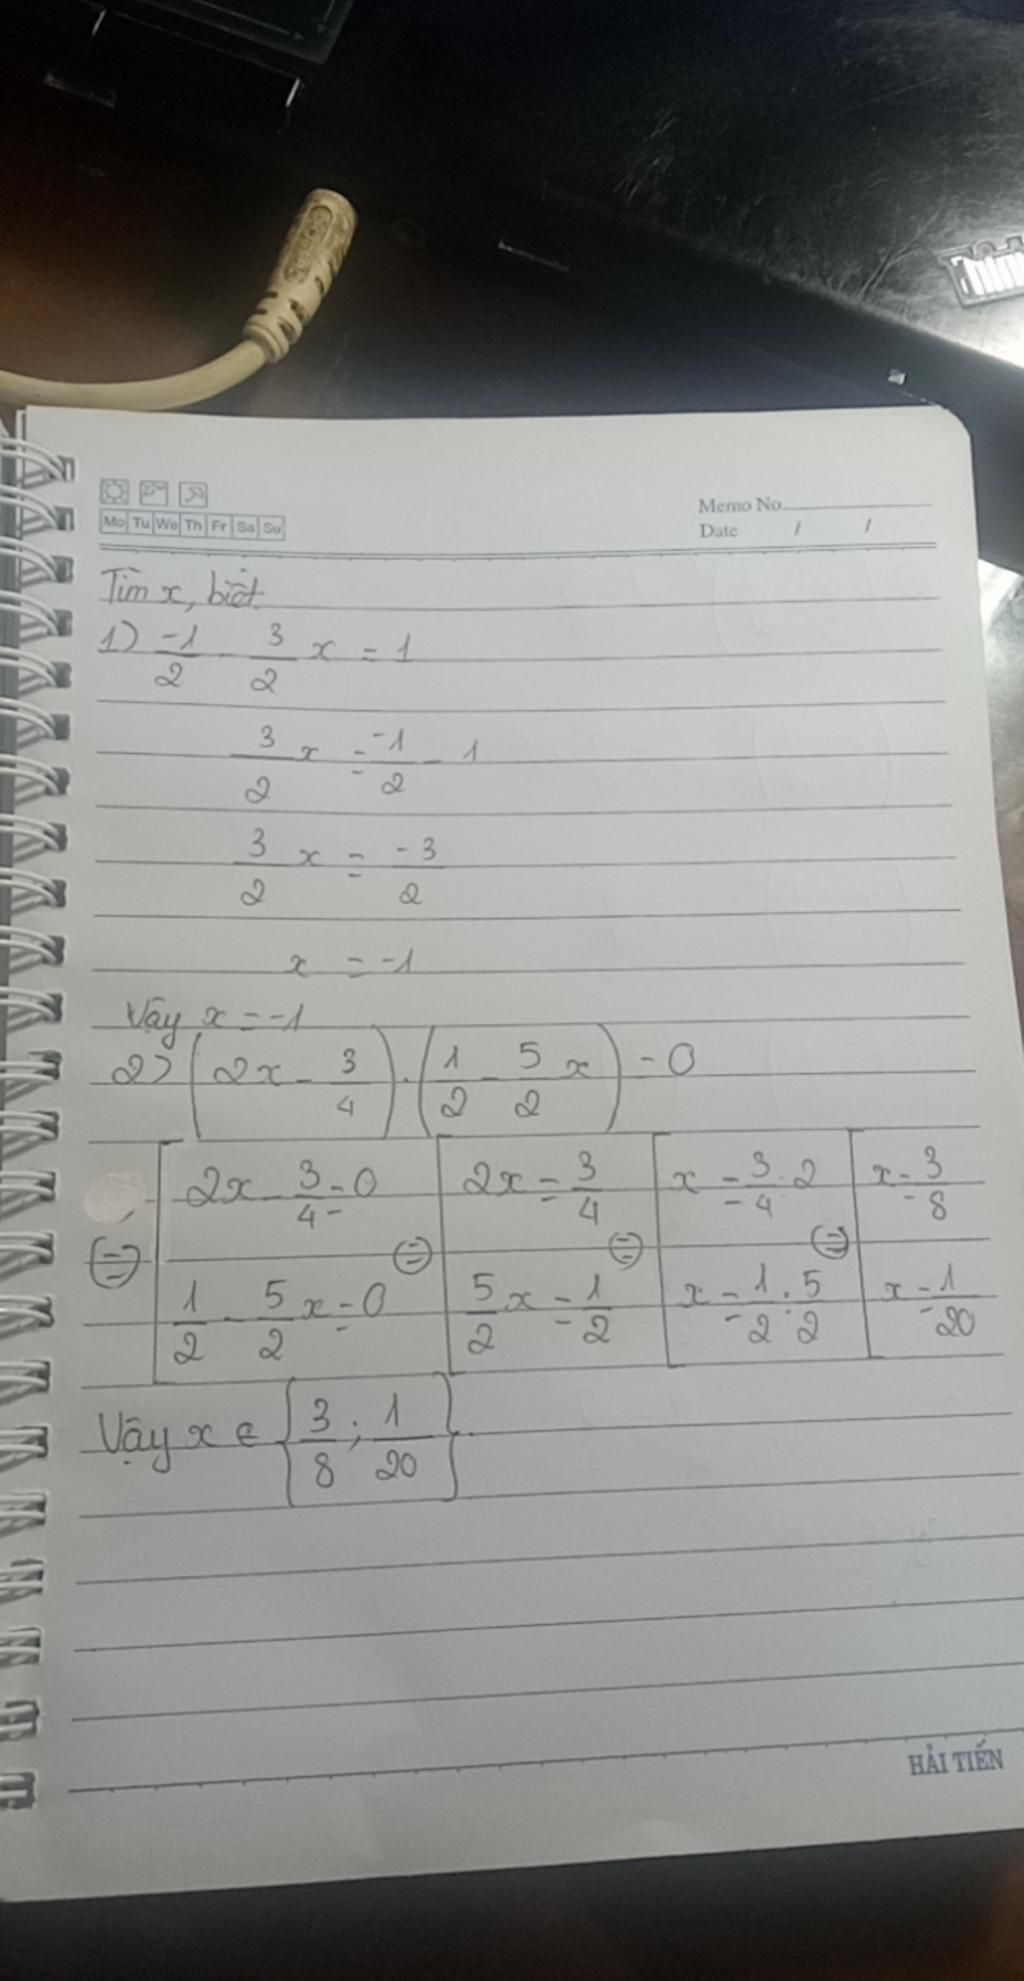 Mo Tu We Th Fr Sa Su
Memo No.
Date / /
Tìm x, biết
1) -1/2 - 3/2 x = 1
3/2 x = -1/2 - 1
3/2 x = -3/2
x = -1
Vậy x = -1
2) (2x - 3/4) . (1/2 - 5/2 x) = 0
⇔ [ 2x - 3/4 = 0 ⇔ [ 2x = 3/4 ⇔ [ x = 3/4 : 2 ⇔ [ x = 3/8
1/2 - 5/2 x = 0 5/2 x = 1/2 x = 1/2 : 5/2 x = 1/20
Vậy x ∈ {3/8 ; 1/20}.
HẢI TIẾN